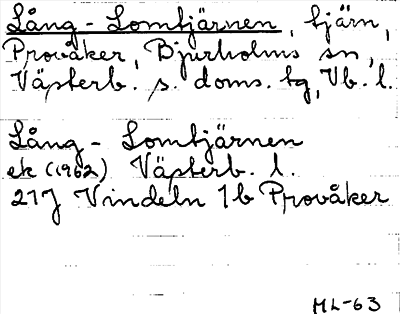 Lång - Lomtjärnen, tjärn,
Provåker, Bjurholms sn,
Västerb. s. doms. tg, Vb. l.
Lång - Lomtjärnen
ek (1962) Västerb. l.
21J Vindeln 1b Provåker
ML-63